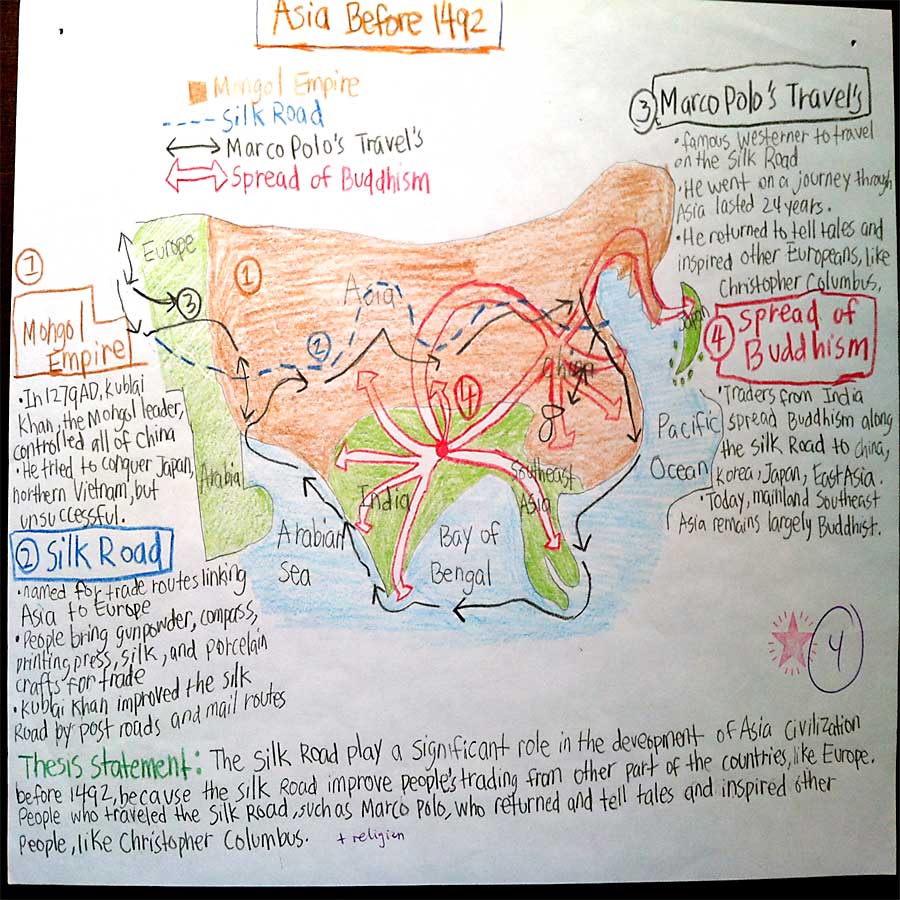 Asia Before 1492
Mongol Empire
Silk Road
Marco Polo's Travel's
Spread of Buddhism
③ Marco Polo's Travel's
• famous westerner to travel
on the Silk Road
• He went on a journey through
Asia lasted 24 years.
• He returned to tell tales and
inspired other Europeans, like
Christopher Columbus,
①
Mongol
Empire
• In 1279 AD, Kublai
Khan, the Mongol leader,
controlled all of China
• He tried to conquer Japan,
northern Vietnam, but
unsuccessful.
② Silk Road
• named for trade routes linking
Asia to Europe
• People bring gunpowder, compass,
printing press, silk, and porcelain
crafts for trade
• Kublai Khan improved the silk
Road by post roads and mail routes
Europe
①
③
Asia
②
④
China
Japan
Arabia
India
Southeast
Asia
Arabian
Sea
Bay of
Bengal
Pacific
Ocean
④ Spread of
Buddhism
• Traders from India
spread Buddhism along
the Silk Road to china,
Korea, Japan, East Asia.
• Today, mainland Southeast
Asia remains largely Buddhist.
4
Thesis statement: The Silk Road play a significant role in the deveopment of Asia Civilization
before 1492, because the silk Road improve people's trading from other part of the countries, like Europe.
People who traveled the Silk Road, such as Marco Polo, who returned and tell tales and inspired other
People, like Christopher Columbus. + religion